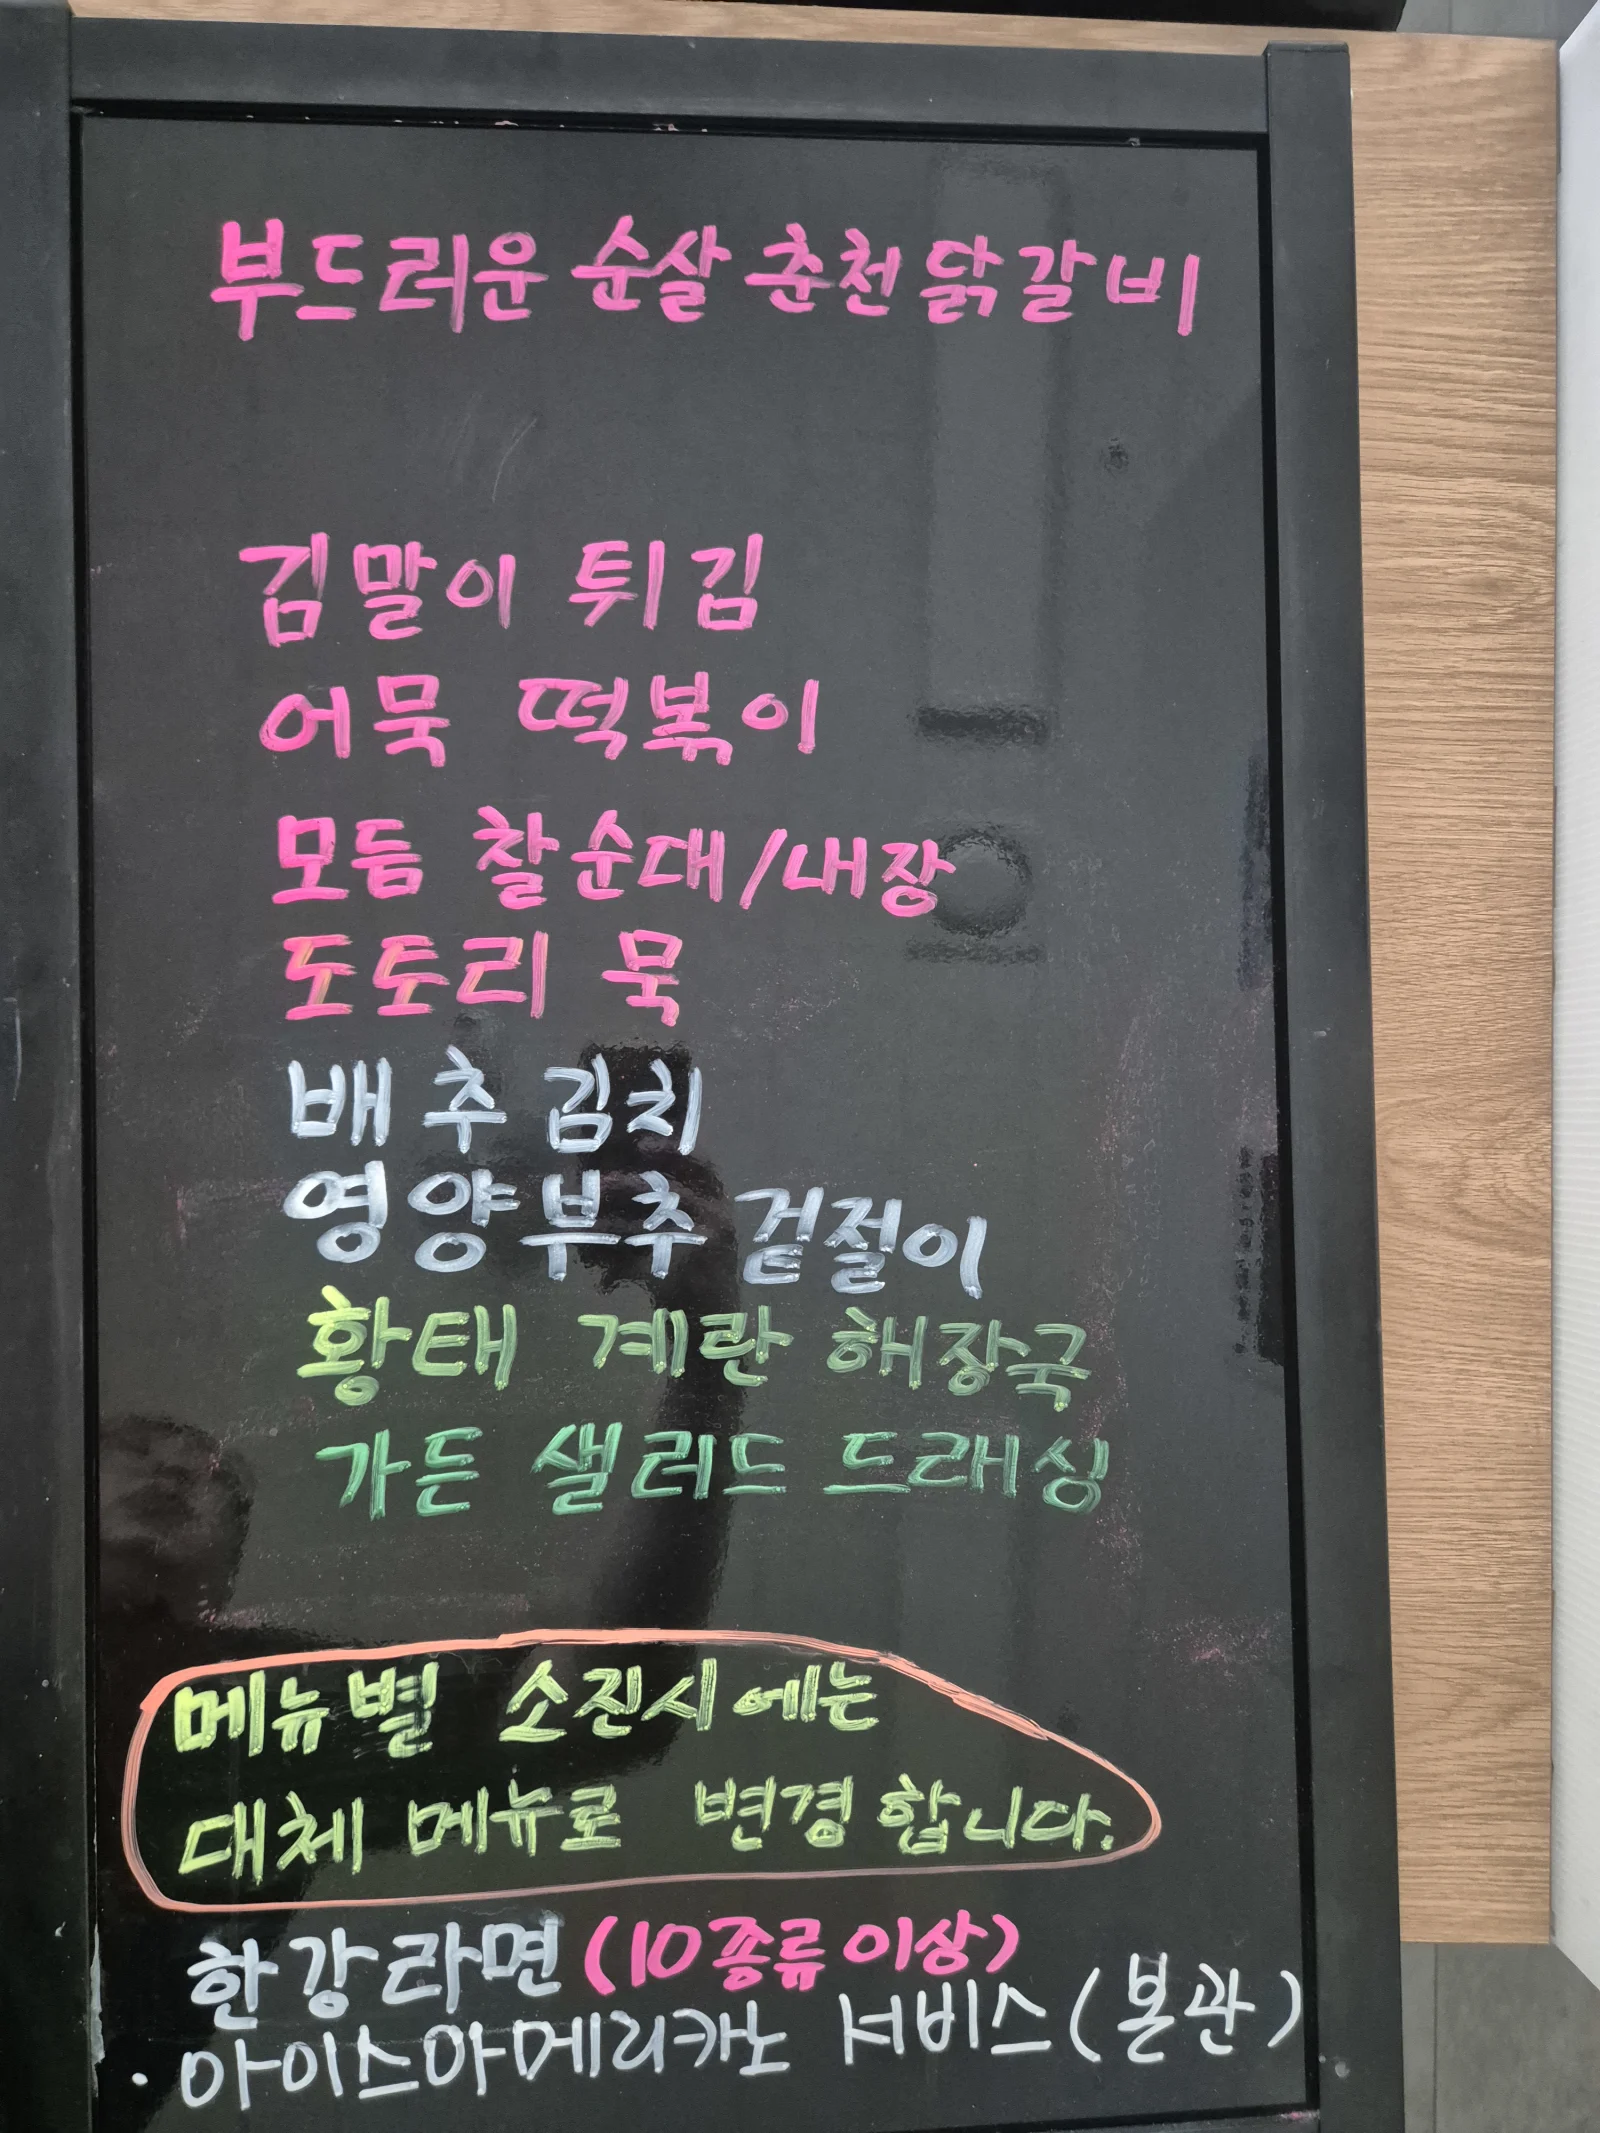 부드러운 순살 춘천닭갈비
김말이 튀김
어묵 떡볶이
모듬 찰순대/내장
도토리 묵
배추김치
영양부추 겉절이
황태 계란 해장국
가든 샐러드 드래싱
메뉴별 소진시에는
대체 메뉴로 변경합니다.
한강라면 (10종류이상)
· 아이스아메리카노 서비스 (본관)